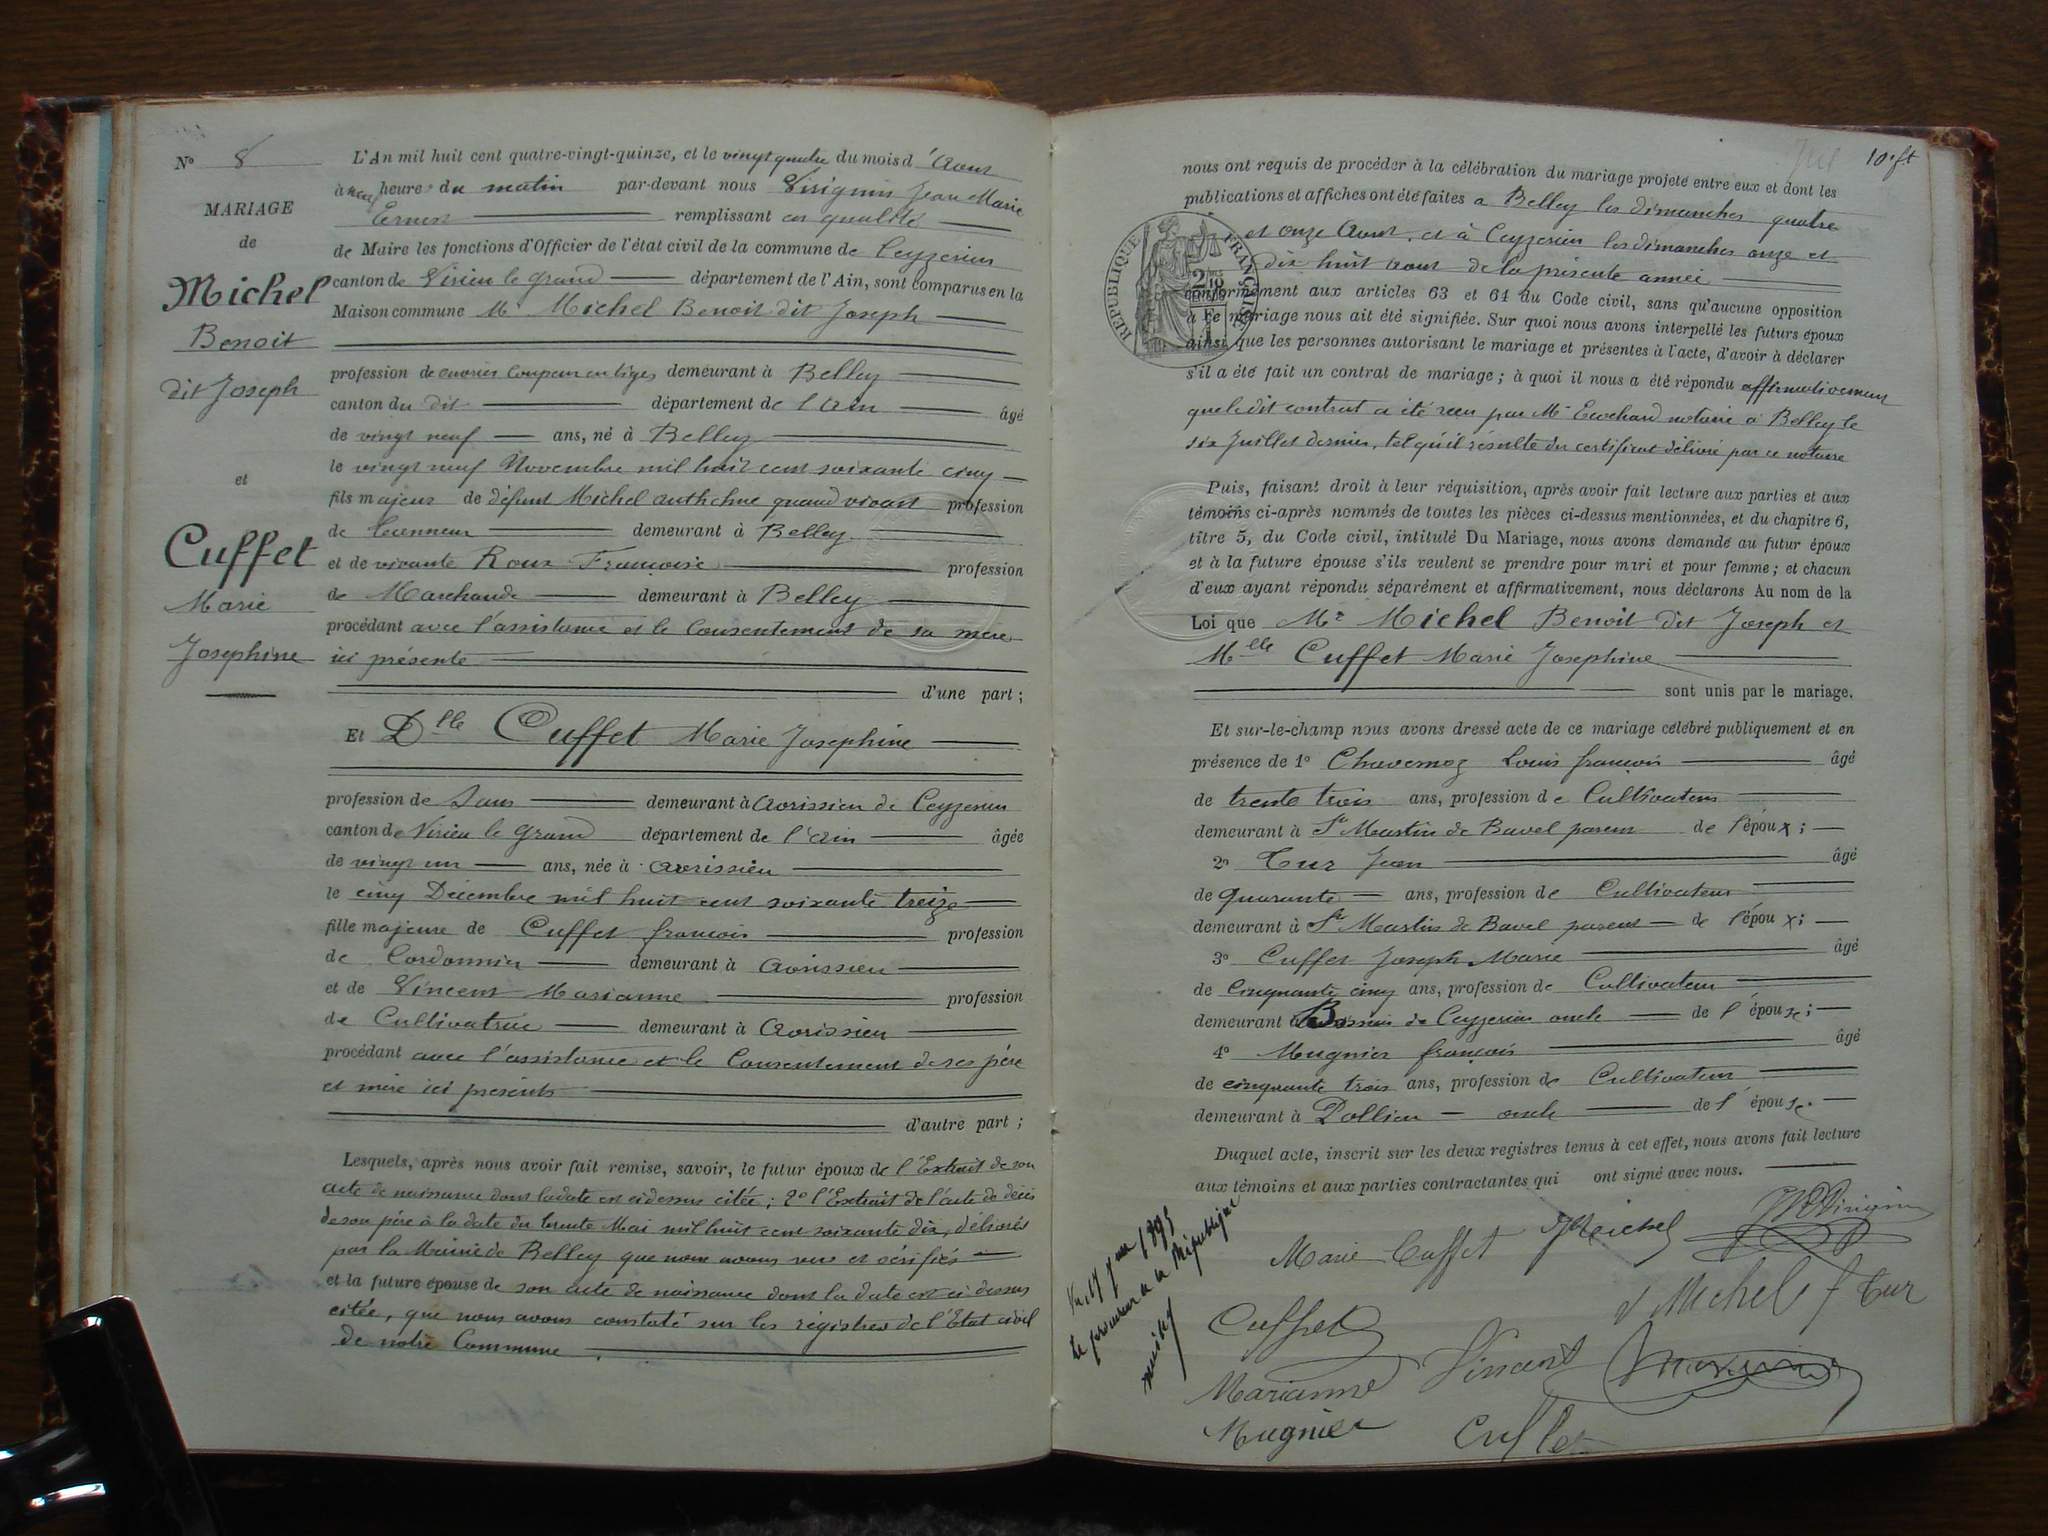 N° 8
MARIAGE
de
Michel
Benoit
dit Joseph
et
Cuffet
Marie
Josephine
L'An mil huit cent quatre-vingt-quinze, et le vingt quatre du mois d'Aout
à neuf heures du matin par-devant nous Virignin Jean Marie
Ernest remplissant en qualité
de Maire les fonctions d'Officier de l'état civil de la commune de Ceyzerieu
canton de Virieu le grand département de l'Ain, sont comparus en la
Maison commune Mr Michel Benoit dit Joseph
profession de ouvrier coupeur en tiges demeurant à Belley
canton du dit département de l'Ain âgé
de vingt neuf ans, né à Belley
le vingt neuf Novembre mil huit cent soixante cinq
fils majeur de défunt Michel anthelme quand vivant profession
de demeurant à Belley
et de vivante Roux Françoise profession
de Marchande demeurant à Belley
procédant avec l'assistance et le Consentement de sa mère
ici présente
d'une part ;
Et Dlle Cuffet Marie Josephine
profession de Sans demeurant à Avrissieu de Ceyzerieu
canton de Virieu le Grand département de l'Ain âgée
de vingt un ans, née à Avrissieu
le cinq Décembre mil huit cent soixante treize
fille majeure de Cuffet françois profession
de Cordonnier demeurant à Avrissieu
et de Vincent Marianne profession
de Cultivatrice demeurant à Avrissieu
procédant avec l'assistance et le Consentement de ses père
et mère ici présents
d'autre part ;
Lesquels, après nous avoir fait remise, savoir, le futur époux de l'Extrait de son
acte de naissance dont la date est ci dessus citée ; 2° l'Extrait de l'acte de décès
de son père à la date du trente Mai mil huit cent soixante dix, délivrés
par la Mairie de Belley que nous avons vus et vérifiés
et la future épouse de son acte de naissance dont la date est ci dessus
citée, que nous avons constaté sur les régistres de l'Etat civil
de notre Commune
10. ft
nous ont requis de procéder à la célébration du mariage projeté entre eux et dont les
publications et affiches ont été faites à Belley les dimanches quatre
et onze Aout, et à Ceyzerieu les dimanches onze et
dix huit aout de la présente année
RÉPUBLIQUE FRANÇAISE
conformément aux articles 63 et 64 du Code civil, sans qu'aucune opposition
à ce mariage nous ait été signifiée. Sur quoi nous avons interpellé les futurs époux
ainsi que les personnes autorisant le mariage et présentes à l'acte, d'avoir à déclarer
s'il a été fait un contrat de mariage ; à quoi il nous a été répondu affirmativement
que le dit contrat a été reçu par Me notaire à Belley le
six Juillet dernier, tel qu'il résulte du certificat délivré par ce notaire
Puis, faisant droit à leur réquisition, après avoir fait lecture aux parties et aux
témoins ci-après nommés de toutes les pièces ci-dessus mentionnées, et du chapitre 6,
titre 5, du Code civil, intitulé Du Mariage, nous avons demandé au futur époux
et à la future épouse s'ils veulent se prendre pour mari et pour femme ; et chacun
d'eux ayant répondu séparément et affirmativement, nous déclarons Au nom de la
Loi que Mr Michel Benoit dit Joseph et
Melle Cuffet Marie Josephine
sont unis par le mariage.
Et sur-le-champ nous avons dressé acte de ce mariage célébré publiquement et en
présence de 1° Chavernoz Louis françois âgé
de trente trois ans, profession de Cultivateur
demeurant à St Martin de Bavel parent de l'époux ;
2° Tur Jean âgé
de quarante ans, profession de Cultivateur
demeurant à St Martin de Bavel parent de l'époux ;
3° Cuffet Joseph Marie âgé
de Cinquante cinq ans, profession de Cultivateur
demeurant à de Ceyzerieu oncle de l'épouse ;
4° Mugnier françois âgé
de cinquante trois ans, profession de Cultivateur
demeurant à Pollieu oncle de l'épouse.
Duquel acte, inscrit sur les deux registres tenus à cet effet, nous avons fait lecture
aux témoins et aux parties contractantes qui ont signé avec nous.
Marie Cuffet Michel
Michel Tur
Cuffet
Marianne Vincent
Mugnier Cuffet
Le procureur de la République